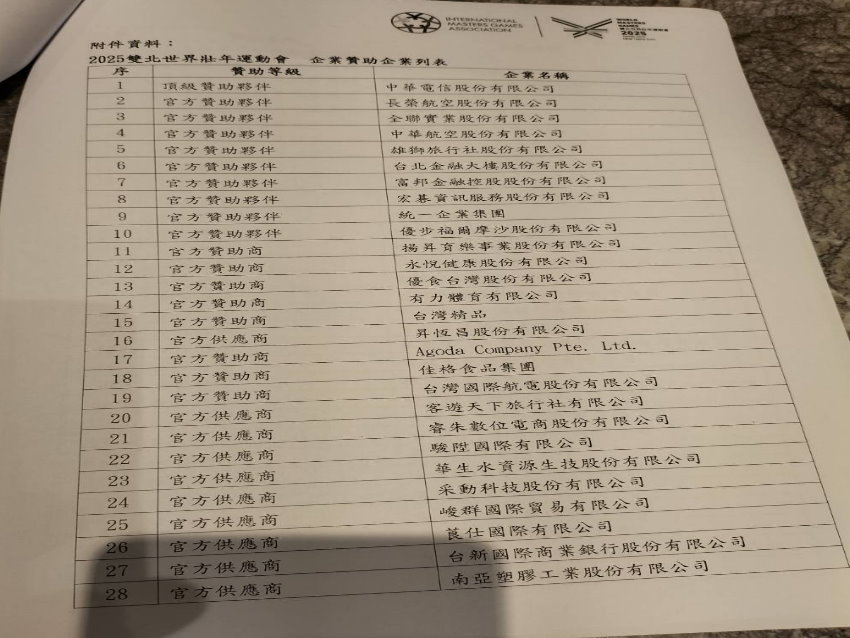 INTERNATIONAL
MASTERS GAMES
ASSOCIATION
WORLD
MASTERS
GAMES
2025
附件資料：
2025雙北世界壯年運動會 企業贊助企業列表
序 贊助等級 企業名稱
1 頂級贊助夥伴 中華電信股份有限公司
2 官方贊助夥伴 長榮航空股份有限公司
3 官方贊助夥伴 全聯實業股份有限公司
4 官方贊助夥伴 中華航空股份有限公司
5 官方贊助夥伴 雄獅旅行社股份有限公司
6 官方贊助夥伴 台北金融大樓股份有限公司
7 官方贊助夥伴 富邦金融控股股份有限公司
8 官方贊助夥伴 宏碁資訊服務股份有限公司
9 官方贊助夥伴 統一企業集團
10 官方贊助夥伴 優步福爾摩沙股份有限公司
11 官方贊助商 揚昇育樂事業股份有限公司
12 官方贊助商 永悅健康股份有限公司
13 官方贊助商 優食台灣股份有限公司
14 官方贊助商 有力體育有限公司
15 官方贊助商 台灣精品
16 官方供應商 昇恆昌股份有限公司
17 官方贊助商 Agoda Company Pte. Ltd.
18 官方贊助商 佳格食品集團
19 官方贊助商 台灣國際航電股份有限公司
20 官方供應商 客遊天下旅行社有限公司
21 官方供應商 睿朱數位電商股份有限公司
22 官方供應商 駿陞國際有限公司
23 官方供應商 華生水資源生技股份有限公司
24 官方供應商 采動科技股份有限公司
25 官方供應商 峻群國際貿易有限公司
26 官方供應商 莨仕國際有限公司
27 官方供應商 台新國際商業銀行股份有限公司
28 官方供應商 南亞塑膠工業股份有限公司